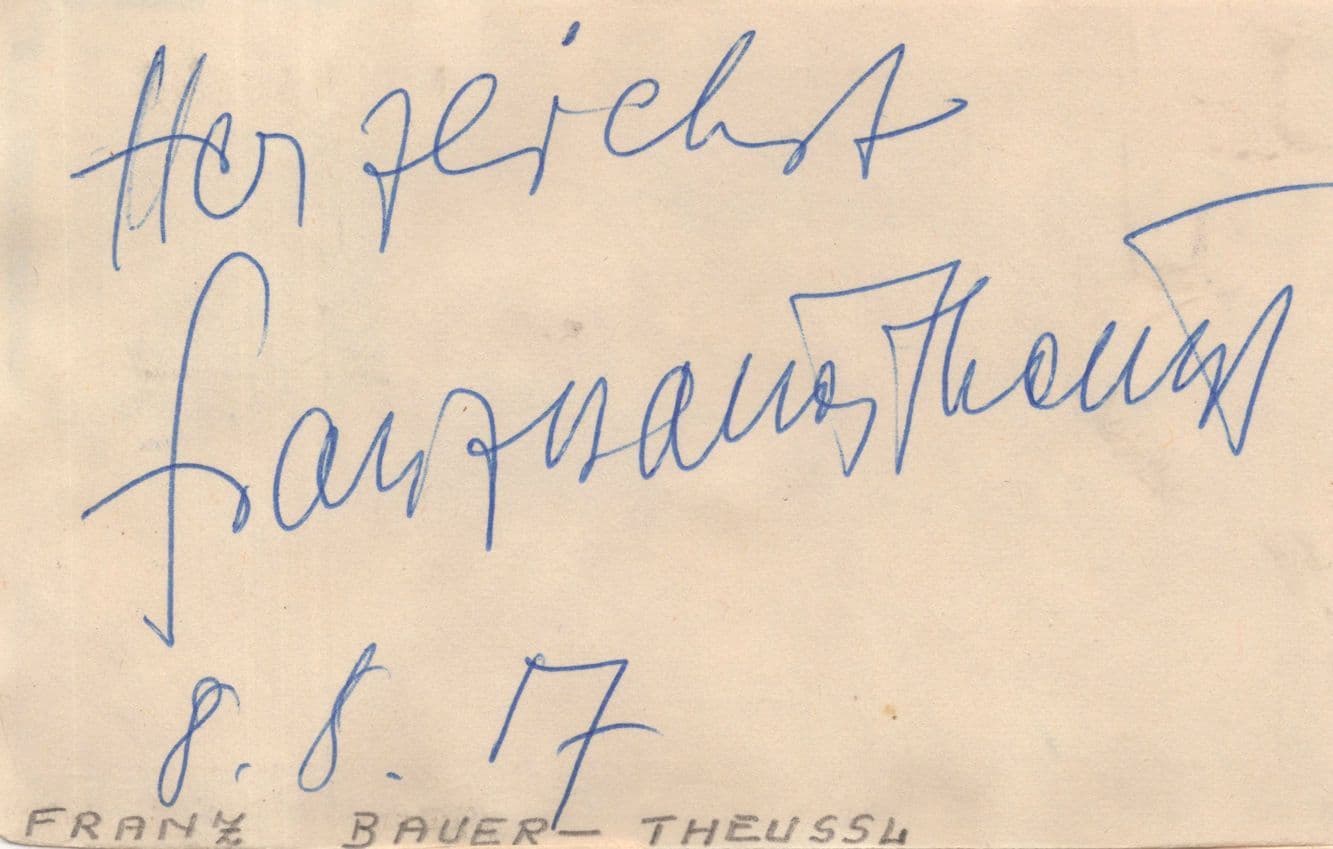 Herzlichst
Franz Bauer Theussl
8. 8. 17
FRANZ BAUER-THEUSSL